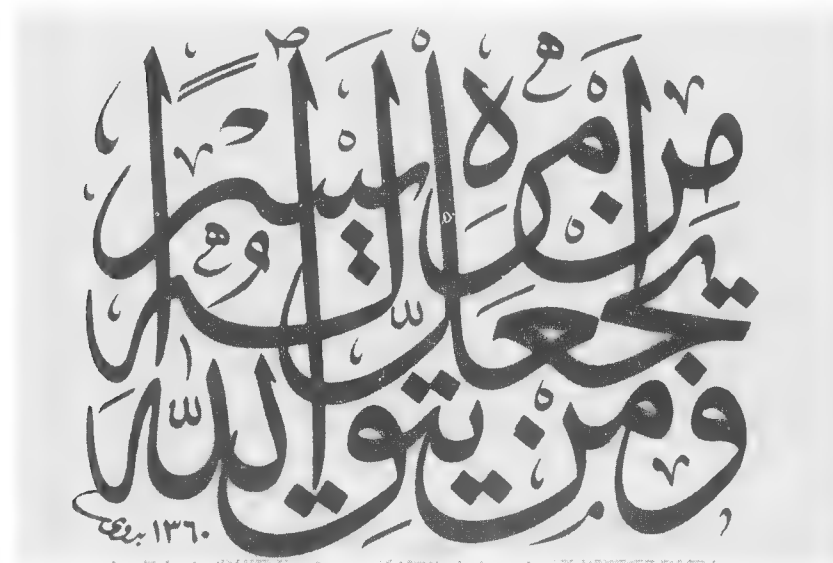 ومن يتق الله
يجعل له
من أمره يسرا
١٣٦٠ بدوي